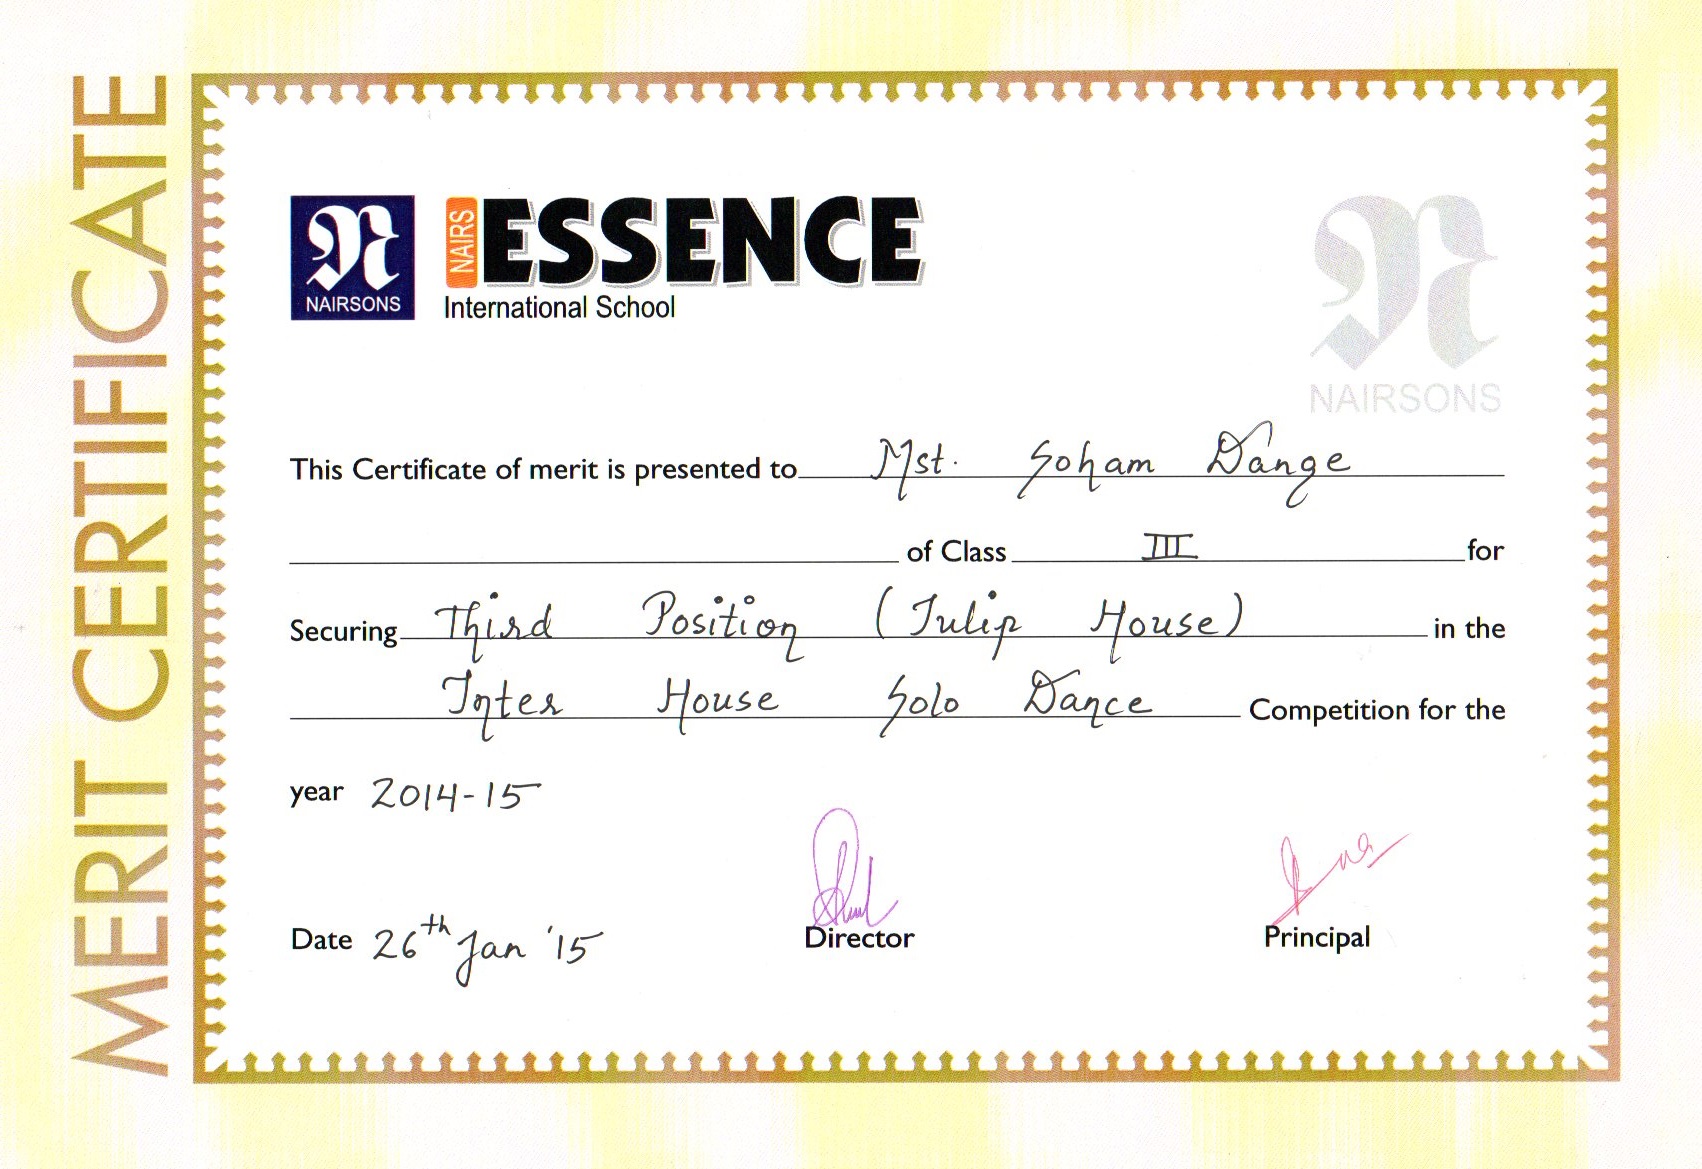 MERIT CERTIFICATE
NAIRSONS
NAIRS ESSENCE
International School
NAIRSONS
This Certificate of merit is presented to Mst. Soham Dange
of Class III for
Securing Third Position (Tulip House) in the
Inter House Solo Dance Competition for the
year 2014-15
Date 26th Jan '15
Director
Principal